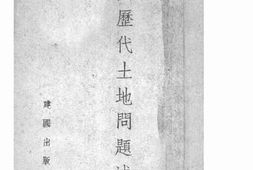 歷代土地問題
建國出版